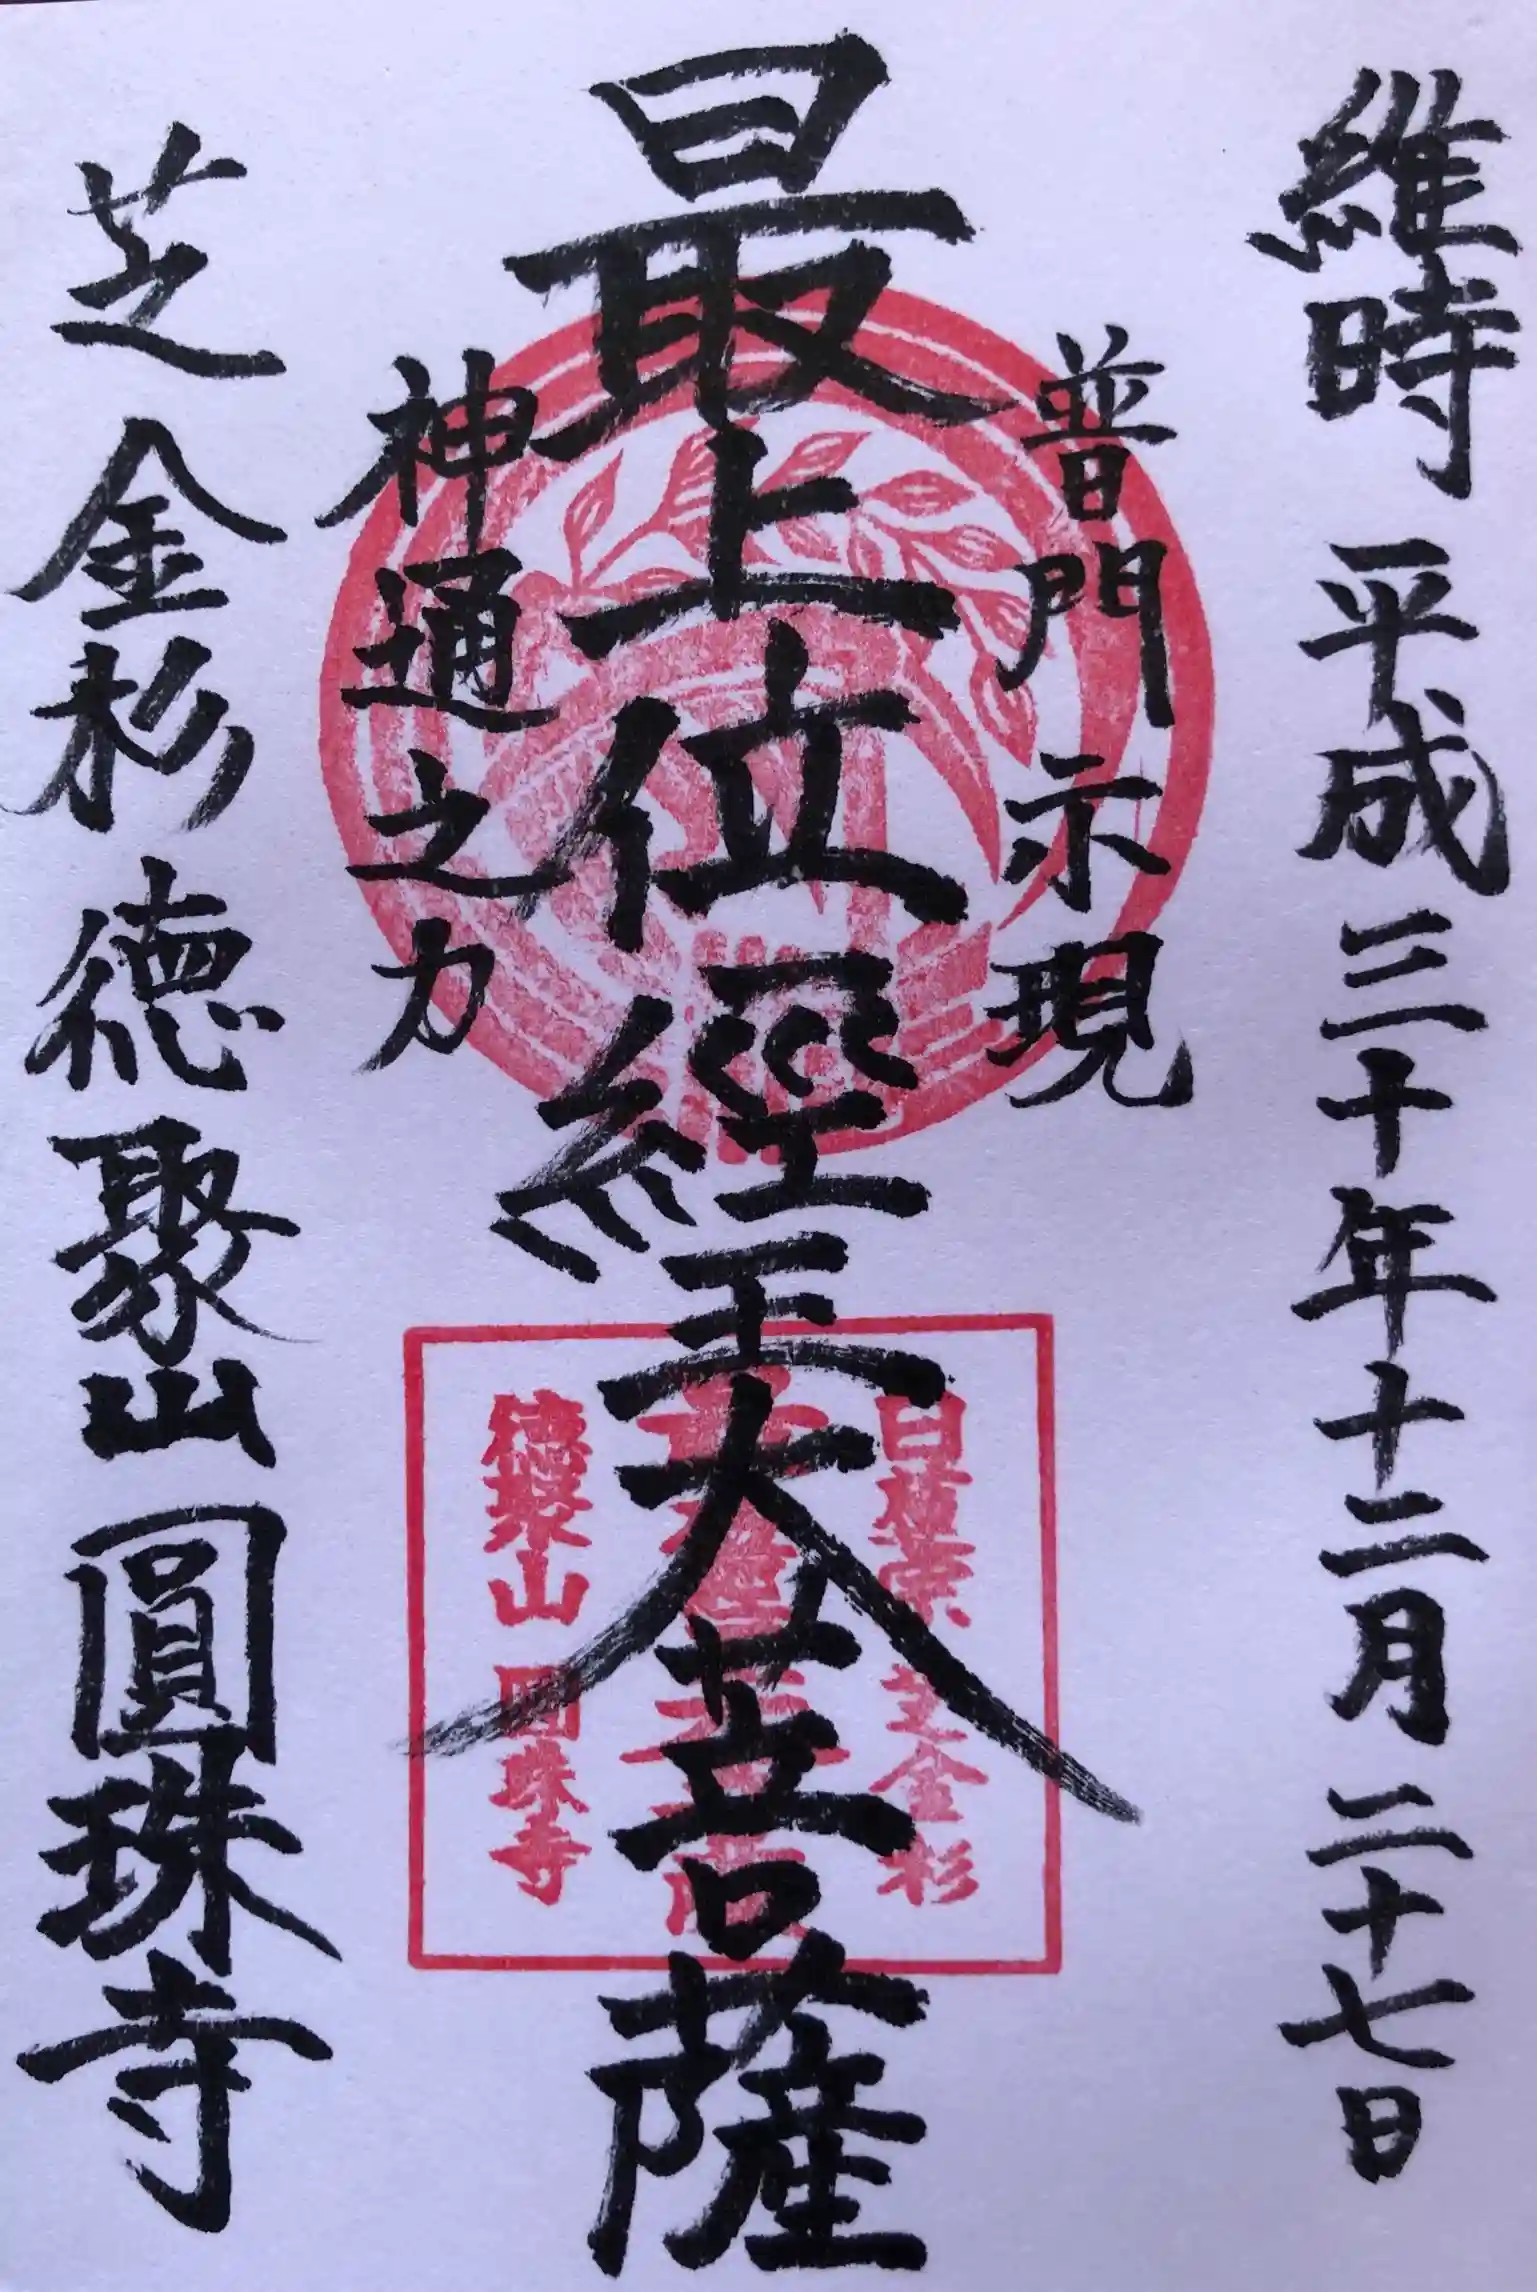 維時 平成三十年十二月二十七日
普門示現
最上位經王大菩薩
神通之力
芝金杉 徳聚山 圓珠寺
日蓮宗 芝金杉
徳聚山 圓珠寺